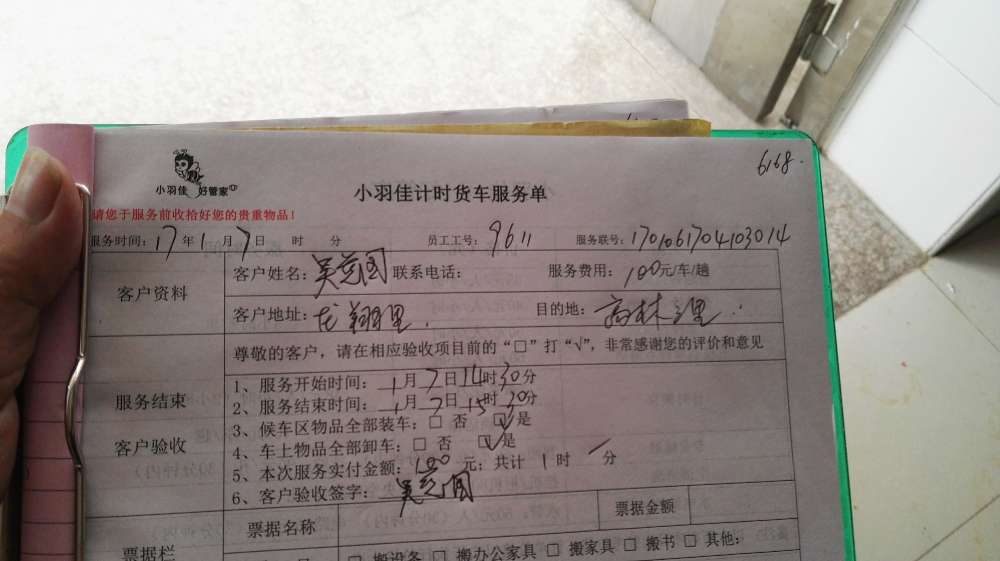 6168.
小羽佳 好管家
小羽佳计时货车服务单
请您于服务前收拾好您的贵重物品！
服务时间：17年1月7日 时 分 员工工号：9611 服务联号：1701061704103014
客户资料
客户姓名：吴 联系电话： 服务费用：100元/车/趟
客户地址：龙翔里. 目的地：高林 里.
尊敬的客户，请在相应验收项目前的“□”打“√”，非常感谢您的评价和意见
服务结束
客户验收
1、服务开始时间：1月7日14时30分
2、服务结束时间：1月7日15时30分
3、候车区物品全部装车：□ 否 ☑是
4、车上物品全部卸车：□ 否 ☑是
5、本次服务实付金额：100元；共计1时/分
6、客户验收签字：吴
票据栏
票据名称 票据金额
□ 搬设备 □ 搬办公家具 □ 搬家具 □ 搬书 □ 其他：